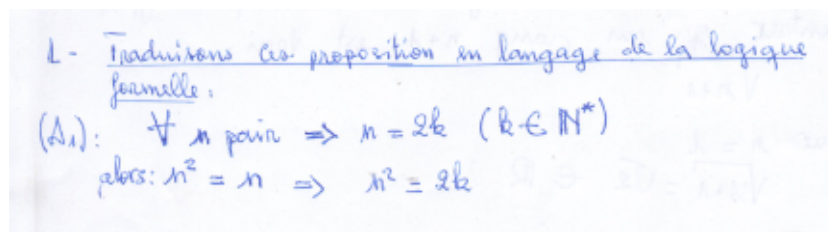 1- Traduisons ces proposition en langage de la logique
formelle :
(A₁): ∀ n pair => n = 2k (k ∈ ℕ*)
alors: n² = n => n² = 2k